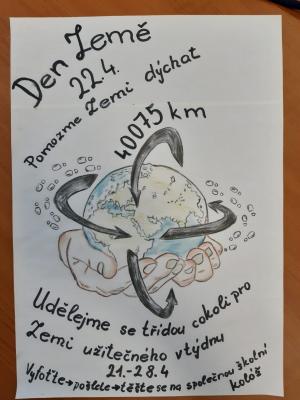 Den Země
22.4.
Pomozme Zemi dýchat
40075 km
Udělejme se třídou cokoli pro
Zemi užitečného v týdnu
21.-28.4
Vyfoťte → pošlete → těšte se na společnou školní
koláž